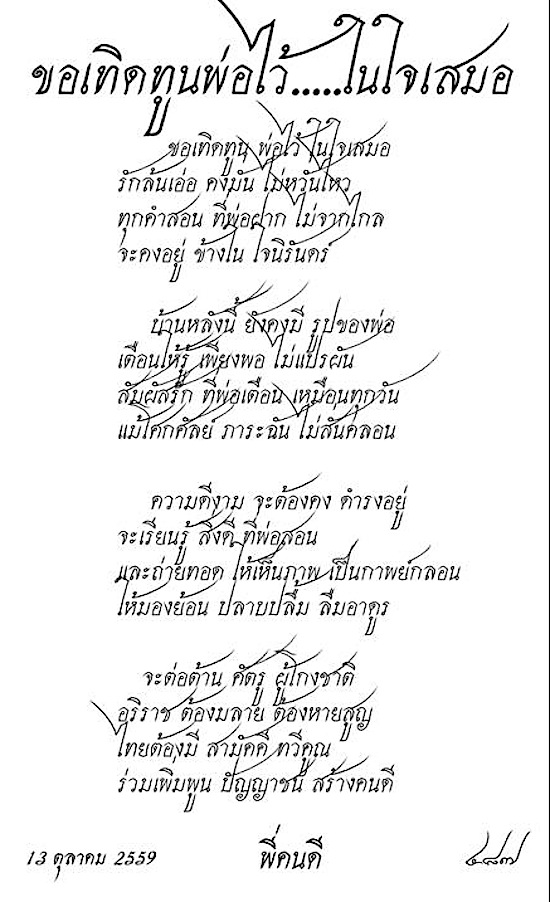 ขอเทิดทูนพ่อไว้.....ในใจเสมอ
ขอเทิดทูน พ่อไว้ ในใจเสมอ
รักล้นเอ่อ คงมั่น ไม่หวั่นไหว
ทุกคำสอน ที่พ่อฝาก ไม่จากไกล
จะคงอยู่ ข้างใน ใจนิรันดร์
บ้านหลังนี้ ยังคงมี รูปของพ่อ
เตือนให้รู้ เพียงพอ ไม่แปรผัน
สัมผัสรัก ที่พ่อเตือน เหมือนทุกวัน
แม้โศกศัลย์ ภาระฉัน ไม่สั่นคลอน
ความดีงาม จะต้องคง ดำรงอยู่
จะเรียนรู้ สิ่งดี ที่พ่อสอน
และถ่ายทอด ให้เห็นภาพ เป็นกาพย์กลอน
ให้มองย้อน ปลาบปลื้ม ลืมอาดูร
จะต่อต้าน ศัตรู ผู้โกงชาติ
อริราช ต้องมลาย ต้องหายสูญ
ไทยต้องมี สามัคคี ทวีคูณ
ร่วมเพิ่มพูน ปัญญาชน สร้างคนดี
13 ตุลาคม 2559 พี่คนดี ๔๘๗